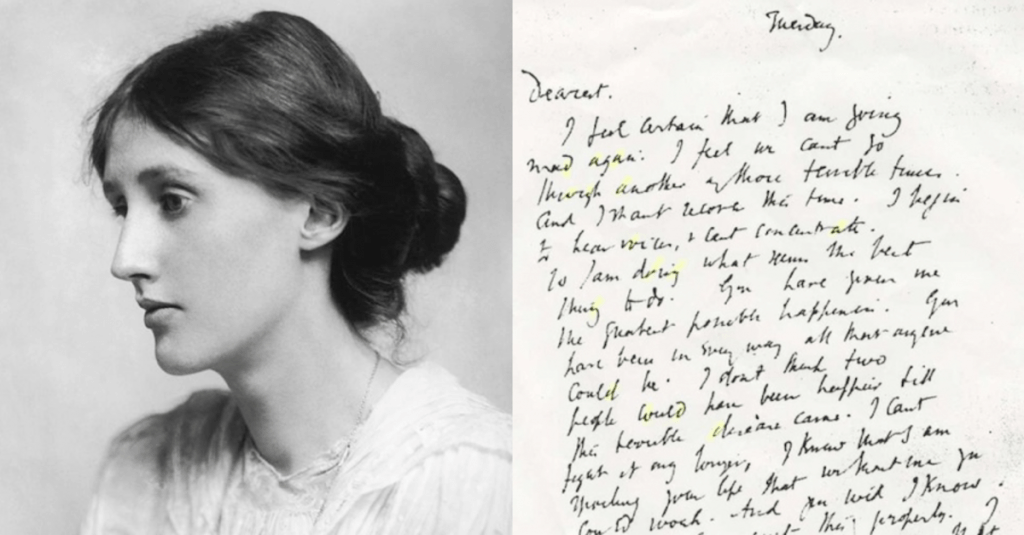 Tuesday.
Dearest.
I feel certain that I am going
mad again. I feel we cant go
through another of those terrible times.
And I shant recover this time. I begin
to hear voices, & cant concentrate.
So I am doing what seems the best
thing to do. You have given me
the greatest possible happiness. You
have been in every way all that anyone
could be. I dont think two
people could have been happier till
this terrible disease came. I cant
fight it any longer, I know that I am
spoiling your life that without me you
could work. And you will I know.
this properly. I